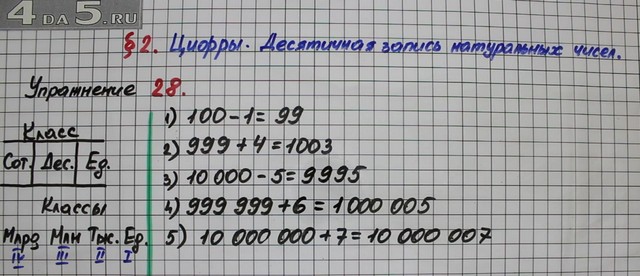 4 DA 5.RU
§ 2. Цифры. Десятичная запись натуральных чисел.
Упражнение 28.
Класс
Сот. Дес. Ед.
Классы
Млрд Млн Тыс. Ед.
IV III II I
1) 100 - 1 = 99
2) 999 + 4 = 1003
3) 10 000 - 5 = 9995
4) 999 999 + 6 = 1 000 005
5) 10 000 000 + 7 = 10 000 007